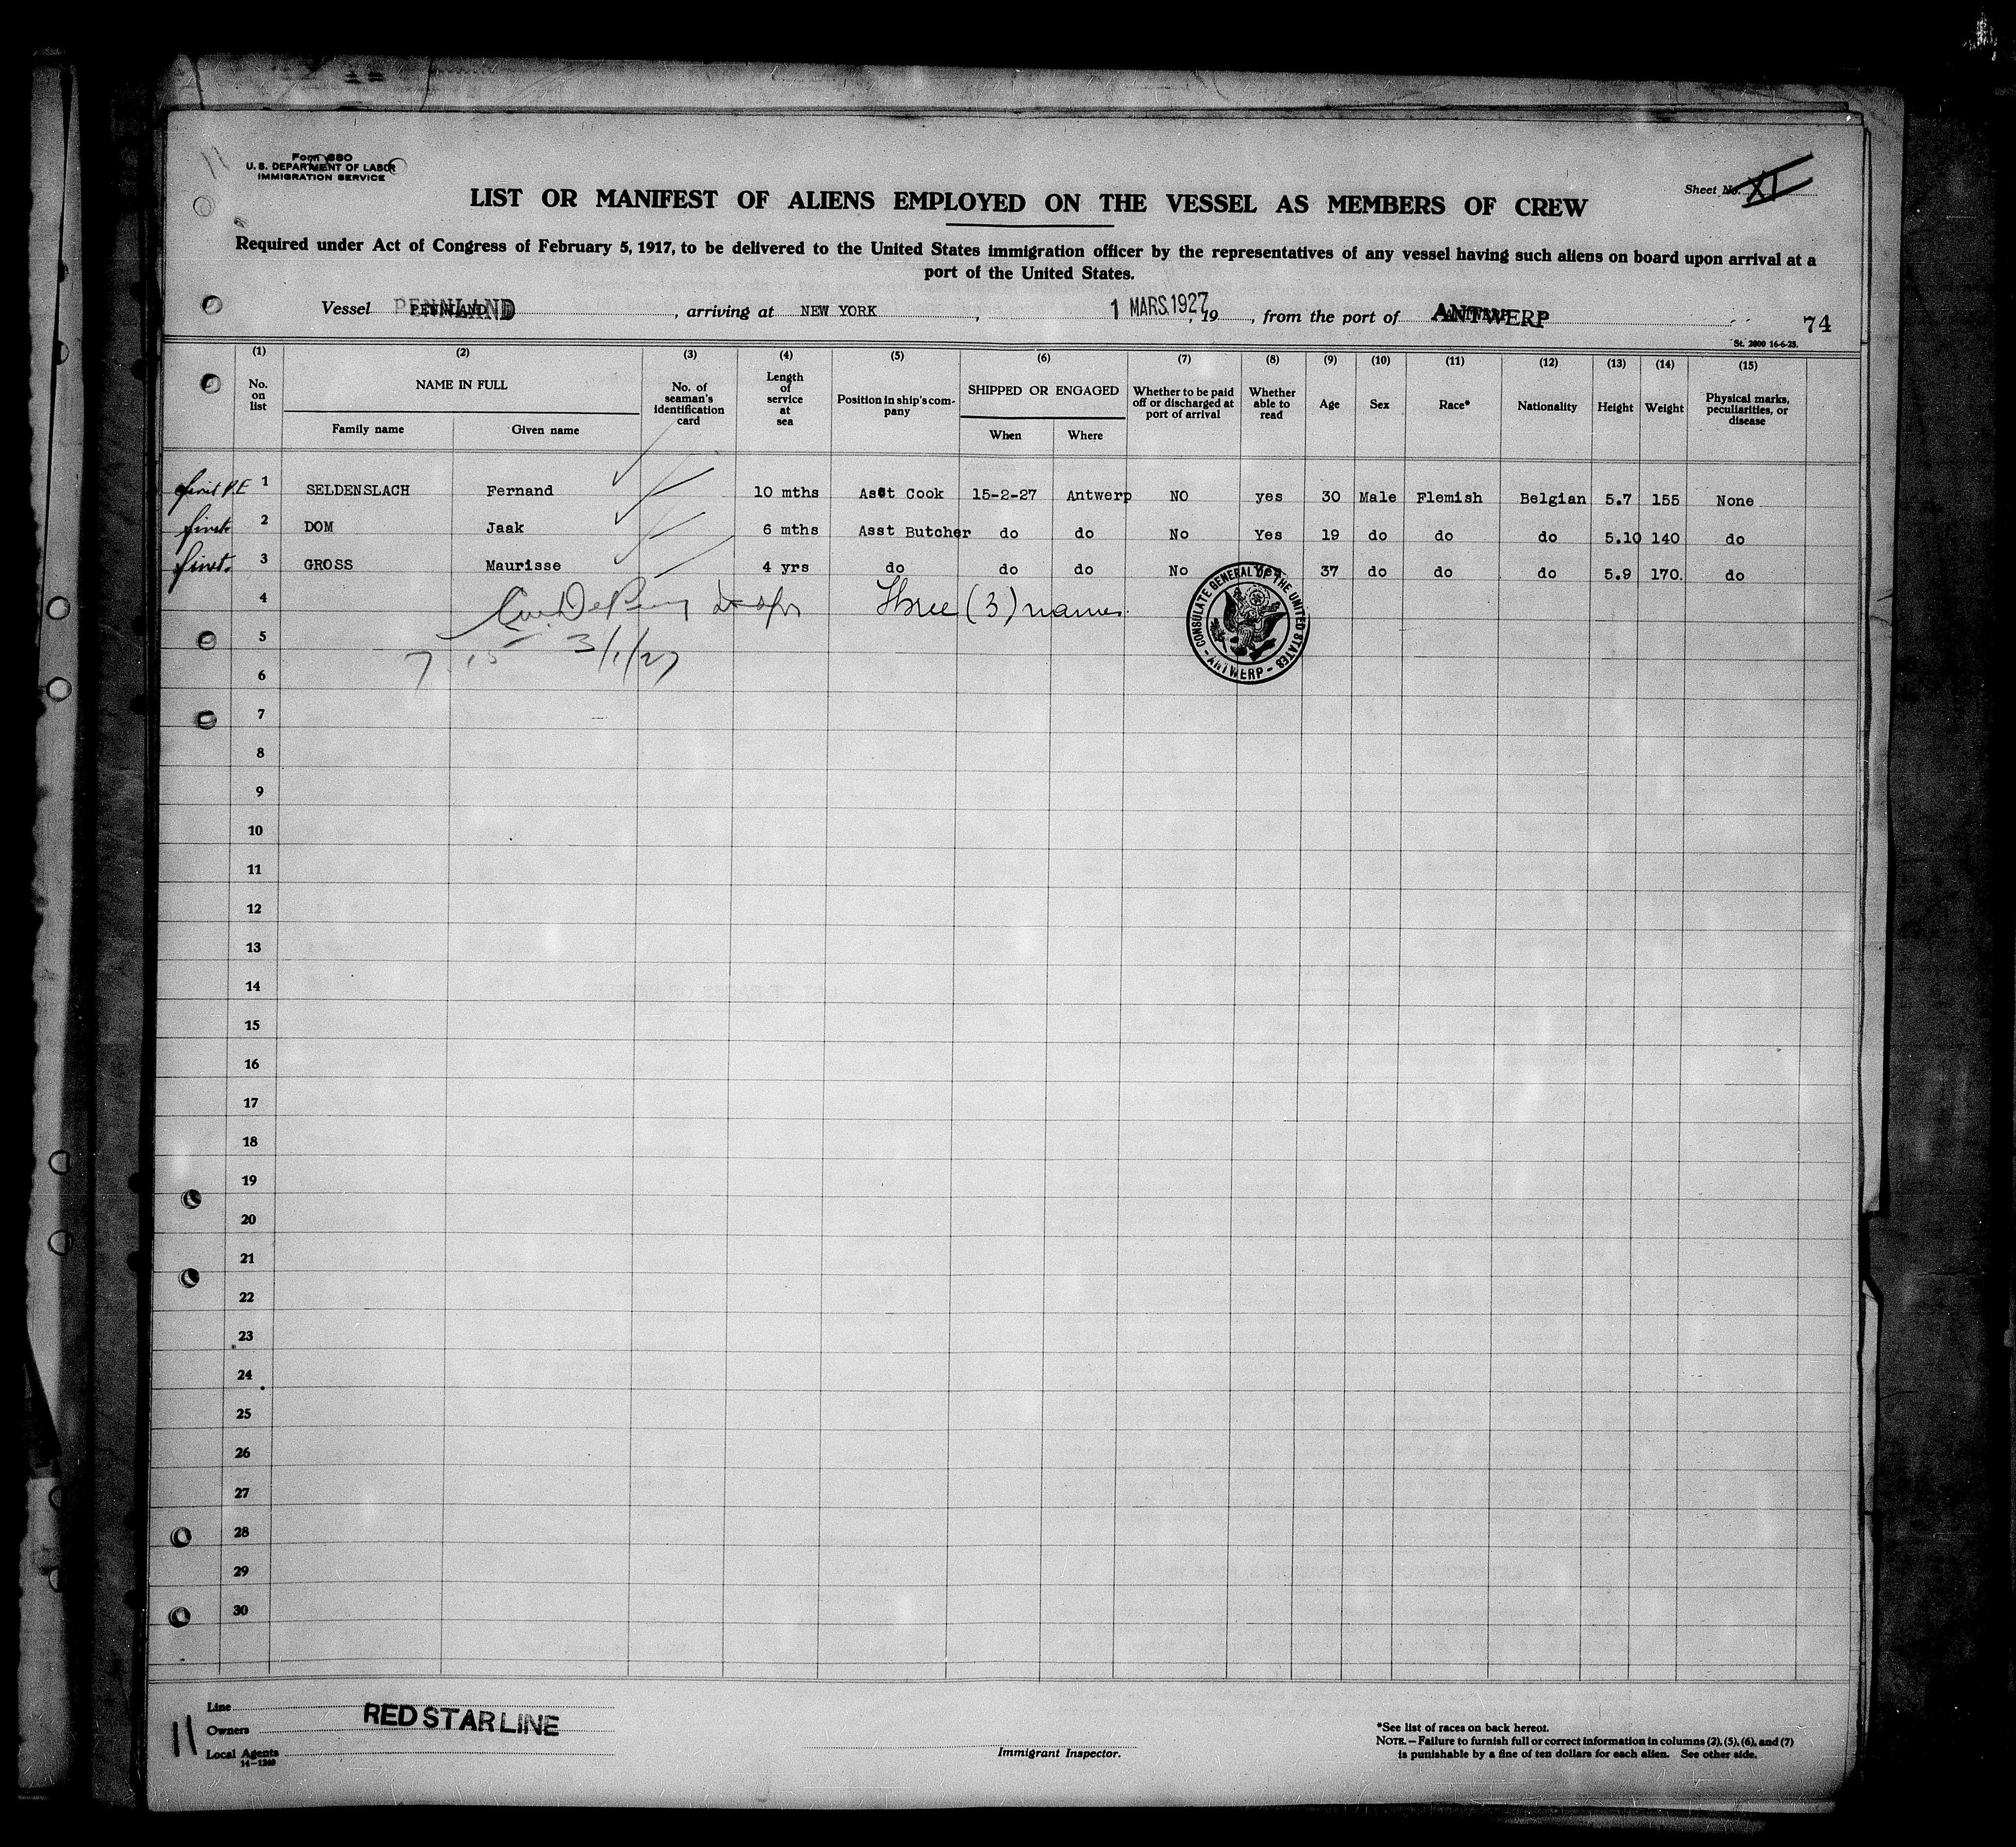 Form 680
U. S. DEPARTMENT OF LABOR
IMMIGRATION SERVICE
Sheet No. XI
LIST OR MANIFEST OF ALIENS EMPLOYED ON THE VESSEL AS MEMBERS OF CREW
Required under Act of Congress of February 5, 1917, to be delivered to the United States immigration officer by the representatives of any vessel having such aliens on board upon arrival at a
port of the United States.
Vessel PENNLAND, arriving at NEW YORK, 1 MARS 1927, 19, from the port of ANTWERP
74
St. 2800 16-6-25.
(1) (2) (3) (4) (5) (6) (7) (8) (9) (10) (11) (12) (13) (14) (15)
No. on list NAME IN FULL Family name Given name No. of seaman's identification card Length of service at sea Position in ship's company SHIPPED OR ENGAGED When Where Whether to be paid off or discharged at port of arrival Whether able to read Age Sex Race* Nationality Height Weight Physical marks, peculiarities, or disease
first P.E 1 SELDENSLACH Fernand 10 mths Asst Cook 15-2-27 Antwerp NO yes 30 Male Flemish Belgian 5.7 155 None
first 2 DOM Jaak 6 mths Asst Butcher do do No Yes 19 do do do 5.10 140 do
first. 3 GROSS Maurisse 4 yrs do do do No Yes 37 do do do 5.9 170. do
4 Three (3) names.
5 3/1/27
6
7
8
9
10
11
12
13
14
15
16
17
18
19
20
21
22
23
24
25
26
27
28
29
30
CONSULATE GENERAL OF THE UNITED STATES - ANTWERP -
Line
Owners RED STAR LINE
Local Agents
14-1240
11
Immigrant Inspector.
*See list of races on back hereof.
NOTE.—Failure to furnish full or correct information in columns (2), (5), (6), and (7)
is punishable by a fine of ten dollars for each alien. See other side.